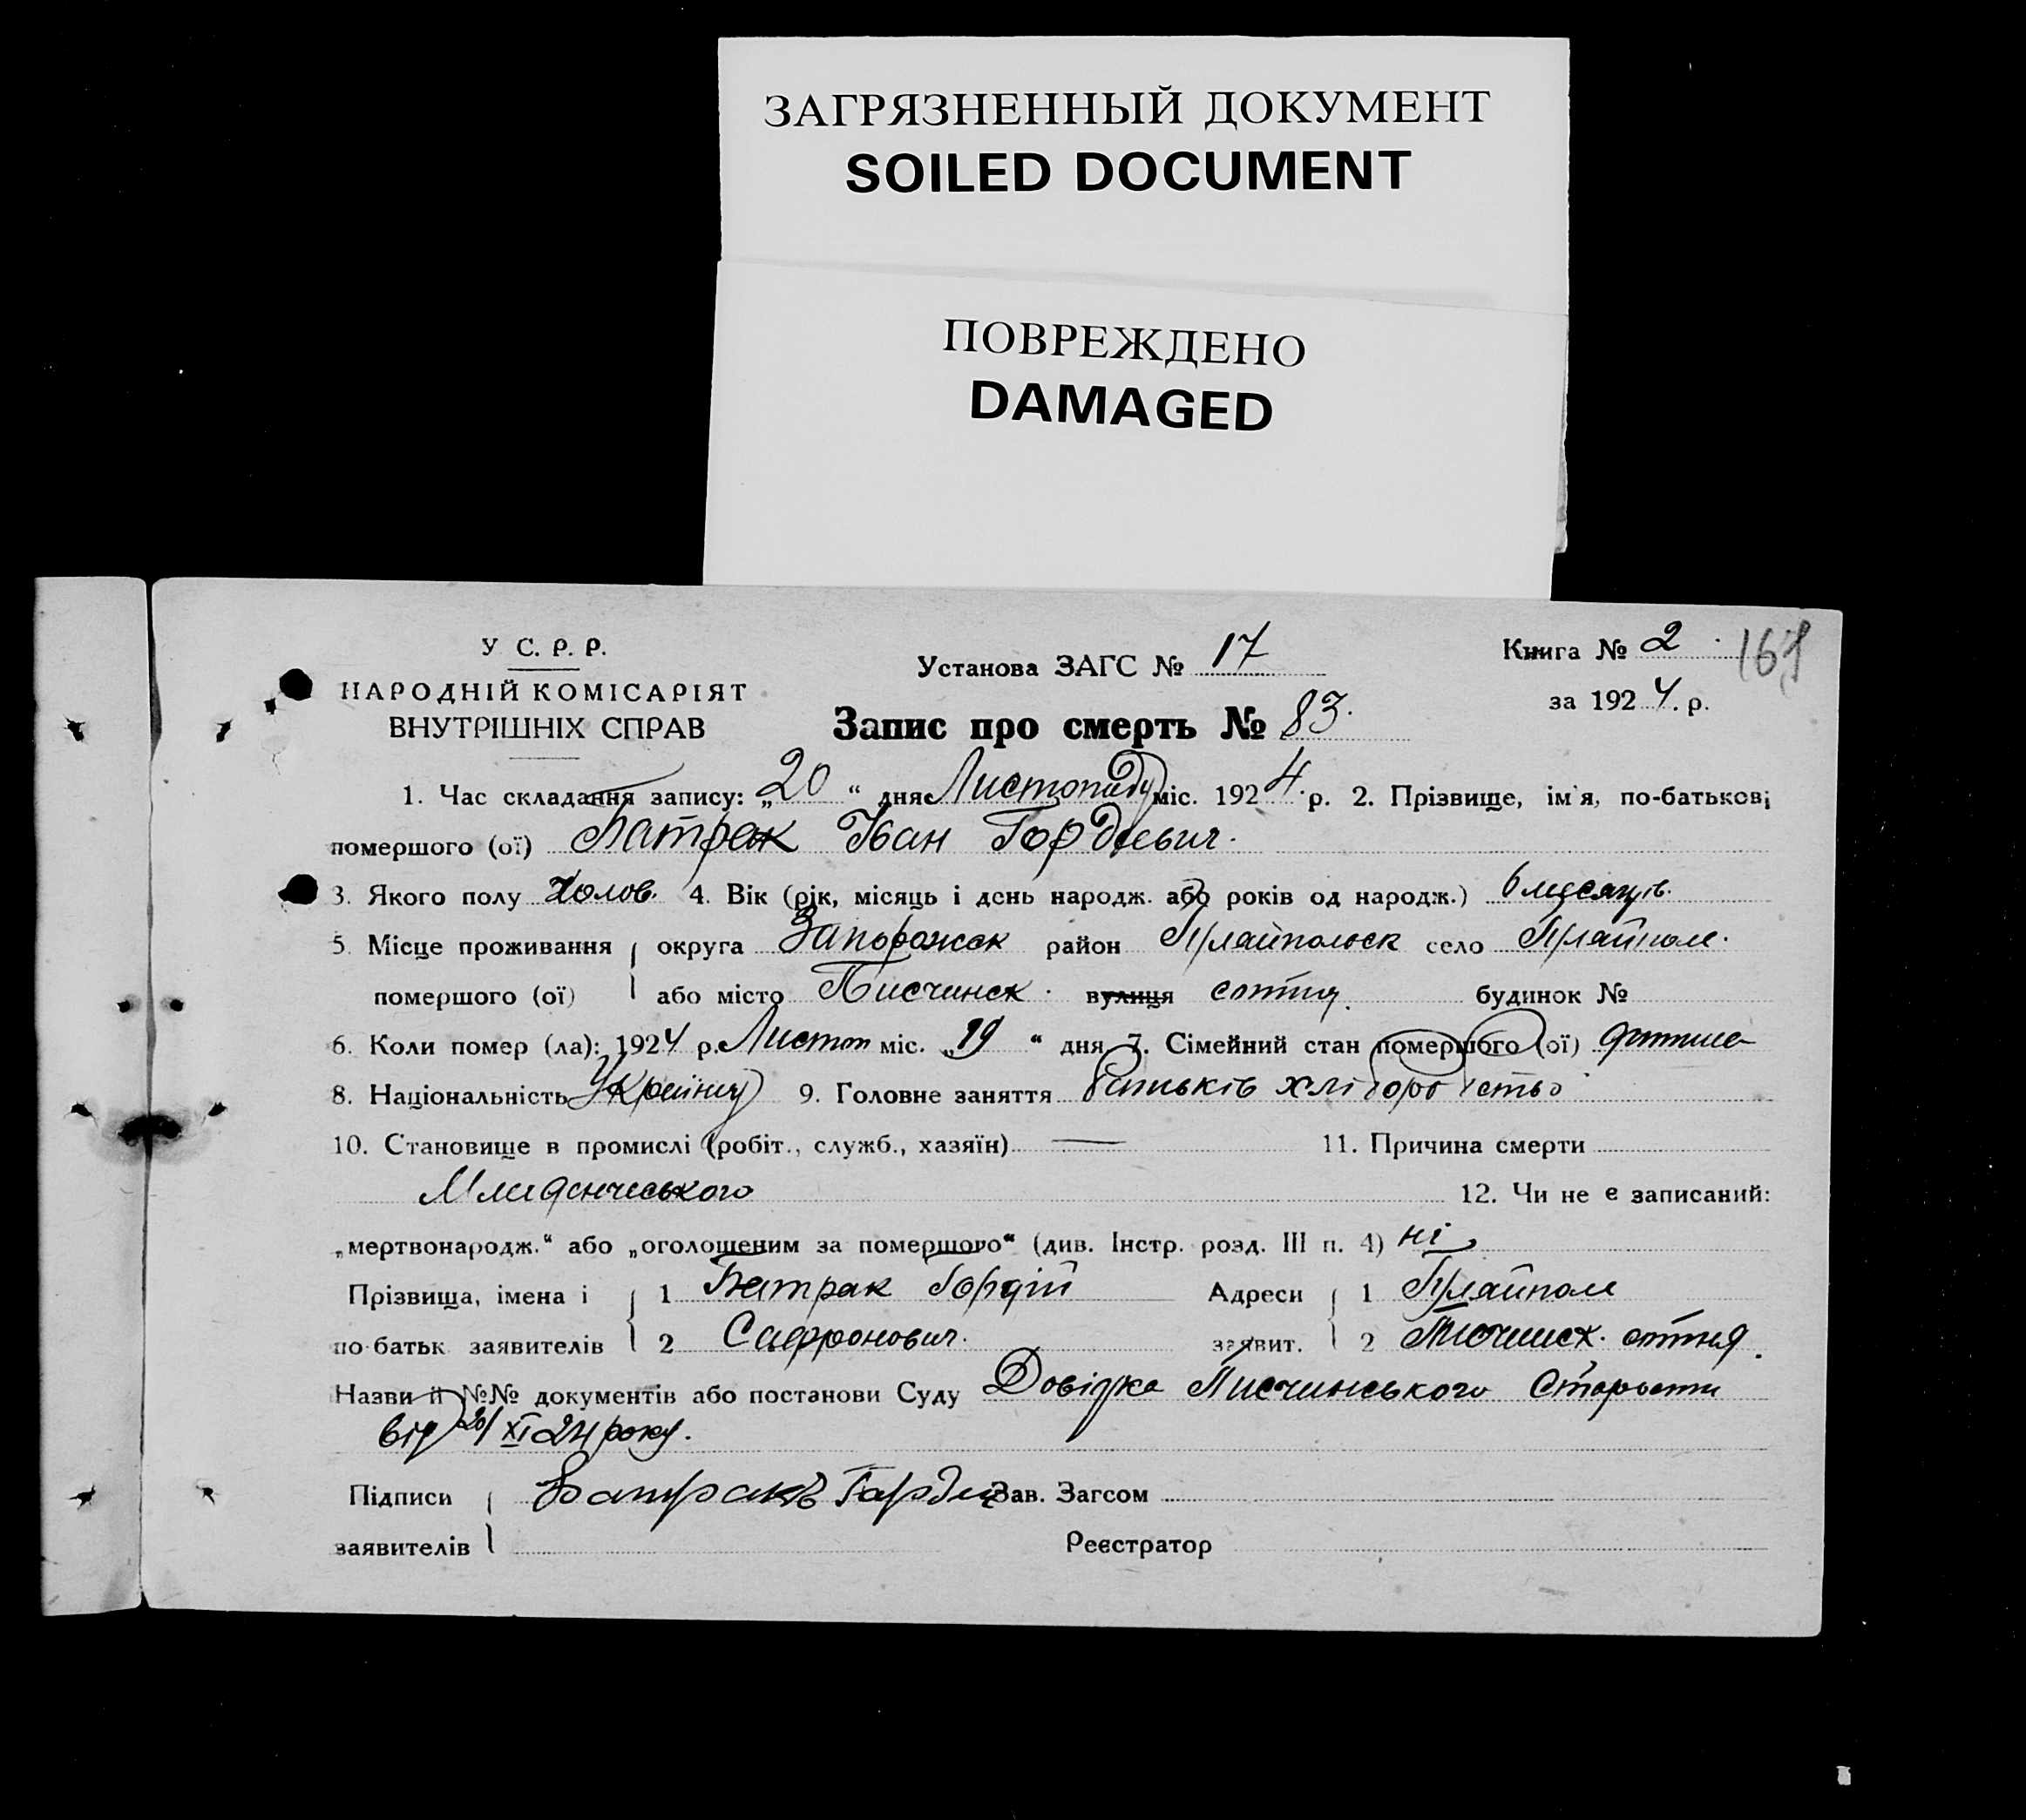 ЗАГРЯЗНЕННЫЙ ДОКУМЕНТ
SOILED DOCUMENT
ПОВРЕЖДЕНО
DAMAGED
У С. Р. Р.
НАРОДНІЙ КОМІСАРІЯТ
ВНУТРІШНІХ СПРАВ
Установа ЗАГС № 17
Книга № 2
за 1924 р.
Запис про смерть № 83.
1. Час складання запису: „20“ дня Листопаду міс. 1924 р. 2. Прізвище, ім'я, по-батькові
помершого (ої) Батрак Іван Гордієвич.
3. Якого полу Холов. 4. Вік (рік, місяць і день народж. або років од народж.) 6 місяців.
5. Місце проживання округа Запорожск район Пряйпольск село Пряйполе.
помершого (ої) або місто Писчинск. вулиця сотня. будинок №
6. Коли помер (ла): 1924 р. Листоп міс. „19“ дня 7. Сімейний стан помершого (ої) дитина
8. Національність 9. Головне заняття батьків хліборобство
10. Становище в промислі (робіт., служб., хазяїн) — 11. Причина смерти
Младенческого 12. Чи не є записаний:
„мертвонародж.“ або „оголошеним за помершого“ (див. Інстр. розд. III п. 4) ні
Прізвища, імена і 1 Батрак Гордій Адреси 1 Пряйполе
по-батьк заявителів 2 Сафронович. заявит. 2 Писчинск. сотня.
Назви й №№ документів або постанови Суду Довідка Писчинського Старости
від 20/XI 24 року.
Підписи Батракъ Зав. Загсом
заявителів Реєстратор